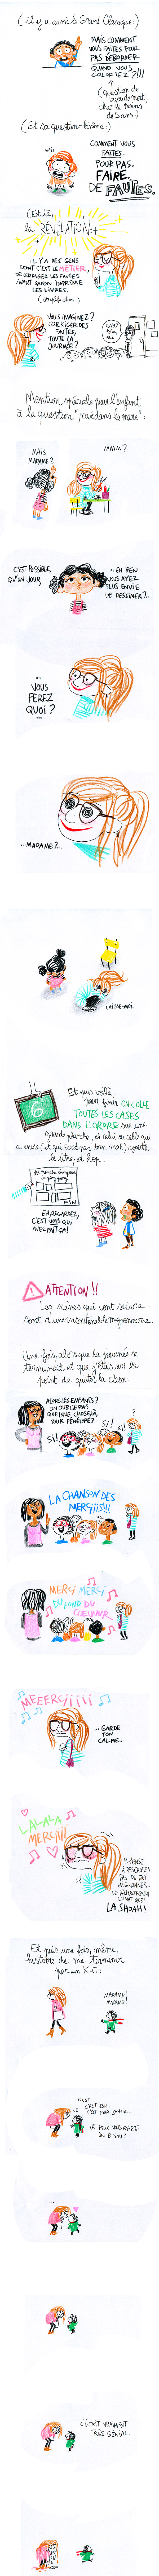 ( il y a aussi le Grand Classique : )
MAIS COMMENT
VOUS FAITES POUR
PAS DÉBORDER
QUAND VOUS
COLORIEZ ?!!!
( question de
vie ou de mort,
chez les moins
de 5 ans )
( Et sa question-
MAIS
COMMENT VOUS
FAITES.
POUR PAS.
FAIRE.
DE FAUTES.
( Et là,
la RÉVÉLATION ! :
IL Y A DES GENS
DONT C'EST LE MÉTIER,
DE CORRIGER LES FAUTES
AVANT QU'ON IMPRIME
LES LIVRES.
( stupéfaction )
VOUS IMAGINEZ ?
CORRIGER DES
FAUTES
TOUTE LA
JOURNÉE !
Mention spéciale pour l'enfant
à la question "
MAIS
MADAME ?
MMM ?
C'EST POSSIBLE,
QU'UN JOUR,
... EH BEN
VOUS AYEZ
PLUS ENVIE
DE DESSINER ?..
...
VOUS
FEREZ
QUOI ?
...MADAME ?..
LAISSE-MOI.
6
Et puis voilà,
pour finir ON COLLE
TOUTES LES CASES
DANS L'ORDRE sur une
grande planche, et celui ou celle qui
a envie ( et qui écrit pas trop mal ) ajoute
le titre, et hop.
FIN
EH, REGARDEZ,
C'EST VOUS QUI
AVEZ FAIT ÇA !
ATTENTION !!
Les scènes qui vont suivre
sont d'une insoutenable mignonnerie.
Une fois, alors que la journée se
terminait et que j'étais sur le
point de quitter la classe :
ALORS LES ENFANTS ?
ON OUBLIE PAS
QUELQUE CHOSE, LÀ,
POUR PÉNÉLOPE ?
SI !
SI !
SI !
?
LA CHANSON DES
MERCIIIS !!!
MERCI MERCI
DU FOND DU
COEUUUR
MEEERCIIIII
... GARDE
TON
CALME...
LALALA
MERCIII
P... PENSE
À DES CHOSES
PAS DU TOUT
MIGNONNES.
LE RÉCHAUFFEMENT
CLIMATIQUE !
LA SHOAH !
Et puis une fois, même,
histoire de me terminer
par un K-O :
MADAME !
MADAME !
C'EST
C'EST EUH..
C'EST POUR SAVOIR...
JE PEUX VOUS FAIRE
UN BISOU ?
...
C'ÉTAIT VRAIMENT
TRÈS GÉNIAL.